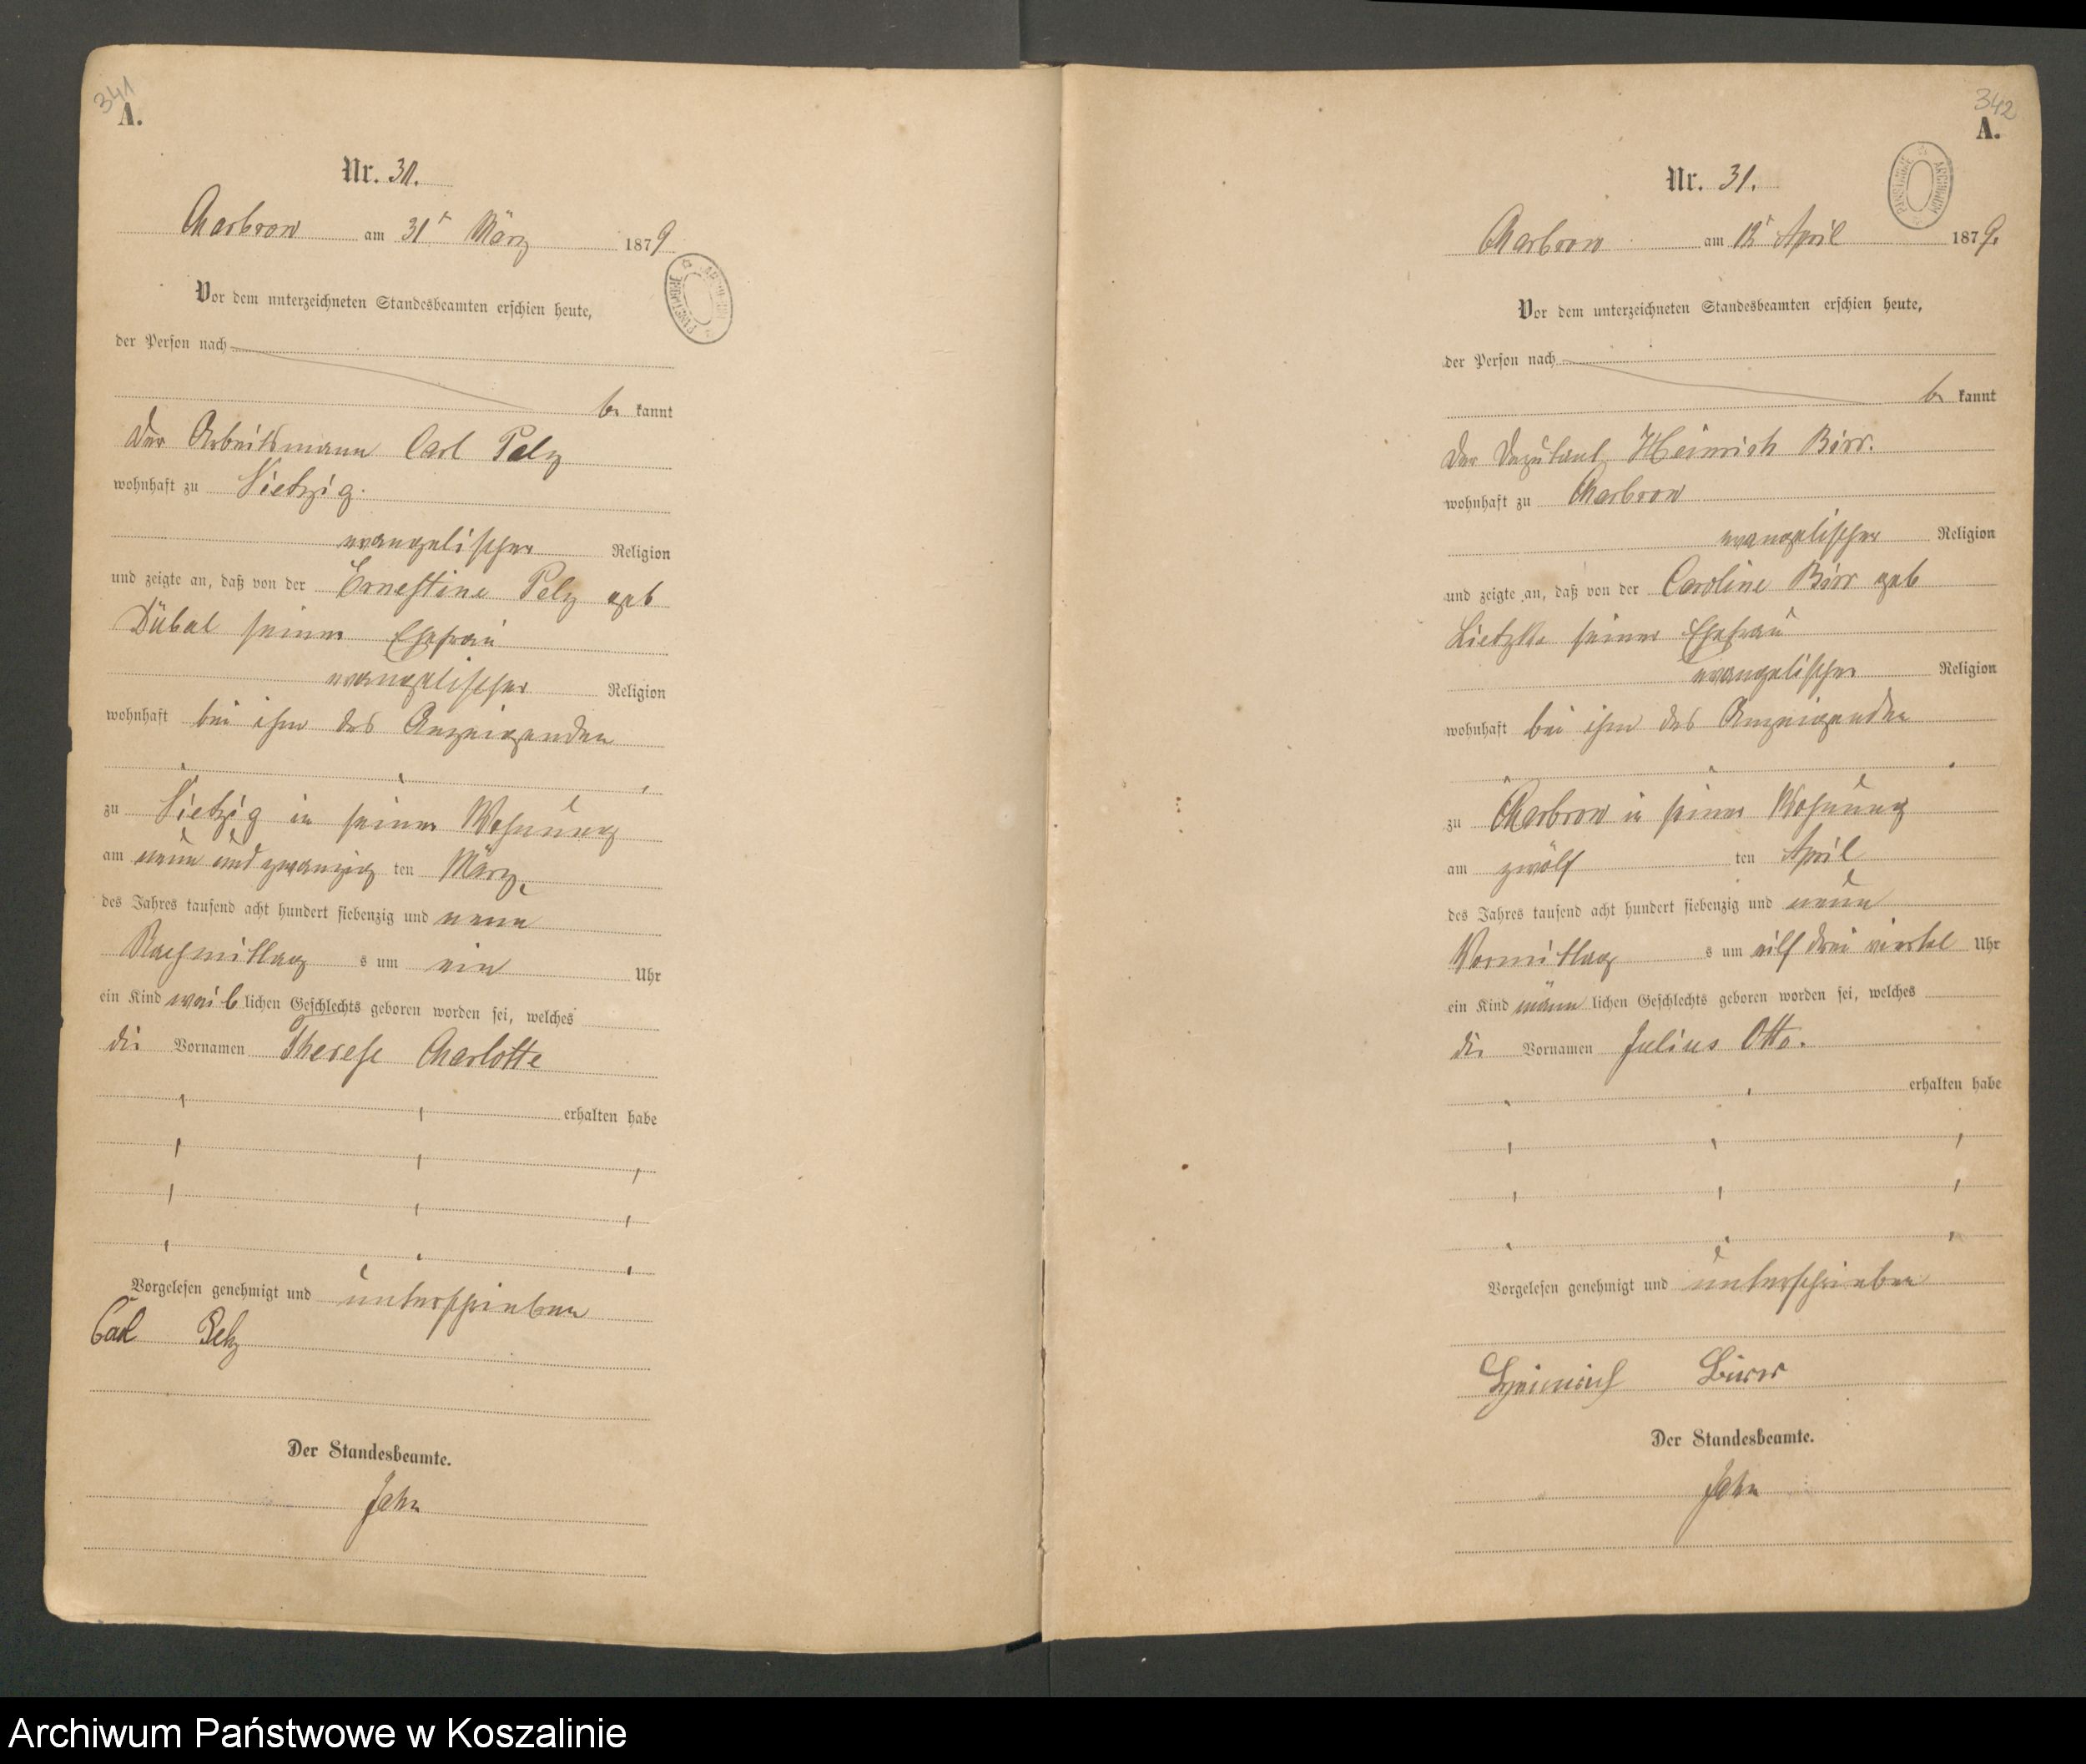 341
A.
Nr. 30.
Charbrow am 31t März 1879
Vor dem unterzeichneten Standesbeamten erschien heute,
der Person nach
be kannt
Der Arbeitsmann Carl Pelz
wohnhaft zu Vietzig.
evangelischer Religion
und zeigte an, daß von der Ernestine Pelz geb
Dübal seiner Ehefrau
evangelischer Religion
wohnhaft bei ihm des Anzeigenden
zu Vietzig in seiner Wohnung
am neun und zwanzig ten März
des Jahres tausend acht hundert siebenzig und neun
Nachmittag s um ein Uhr
ein Kind weib lichen Geschlechts geboren worden sei, welches
die Vornamen Therese Charlotte
erhalten habe
Vorgelesen genehmigt und unterschrieben
Carl Pelz
Der Standesbeamte.
Jahn
342
A.
ARCHIWUM PAŃSTWOWE
Nr. 31.
Charbrow am April 1879.
Vor dem unterzeichneten Standesbeamten erschien heute,
der Person nach
be kannt
Der Deputant Heinrich Birr.
wohnhaft zu Charbrow
evangelischer Religion
und zeigte an, daß von der Caroline Birr geb
Lietzke seiner Ehefrau
evangelischer Religion
wohnhaft bei ihm des Anzeigenden
zu Charbrow in seiner Wohnung
am zwölf ten April
des Jahres tausend acht hundert siebenzig und neun
Vormittag s um eilf drei viertel Uhr
ein Kind männ lichen Geschlechts geboren worden sei, welches
die Vornamen Julius Otto.
erhalten habe
Vorgelesen genehmigt und unterschrieben
Heinrich Birr
Der Standesbeamte.
Jahn
Archiwum Państwowe w Koszalinie